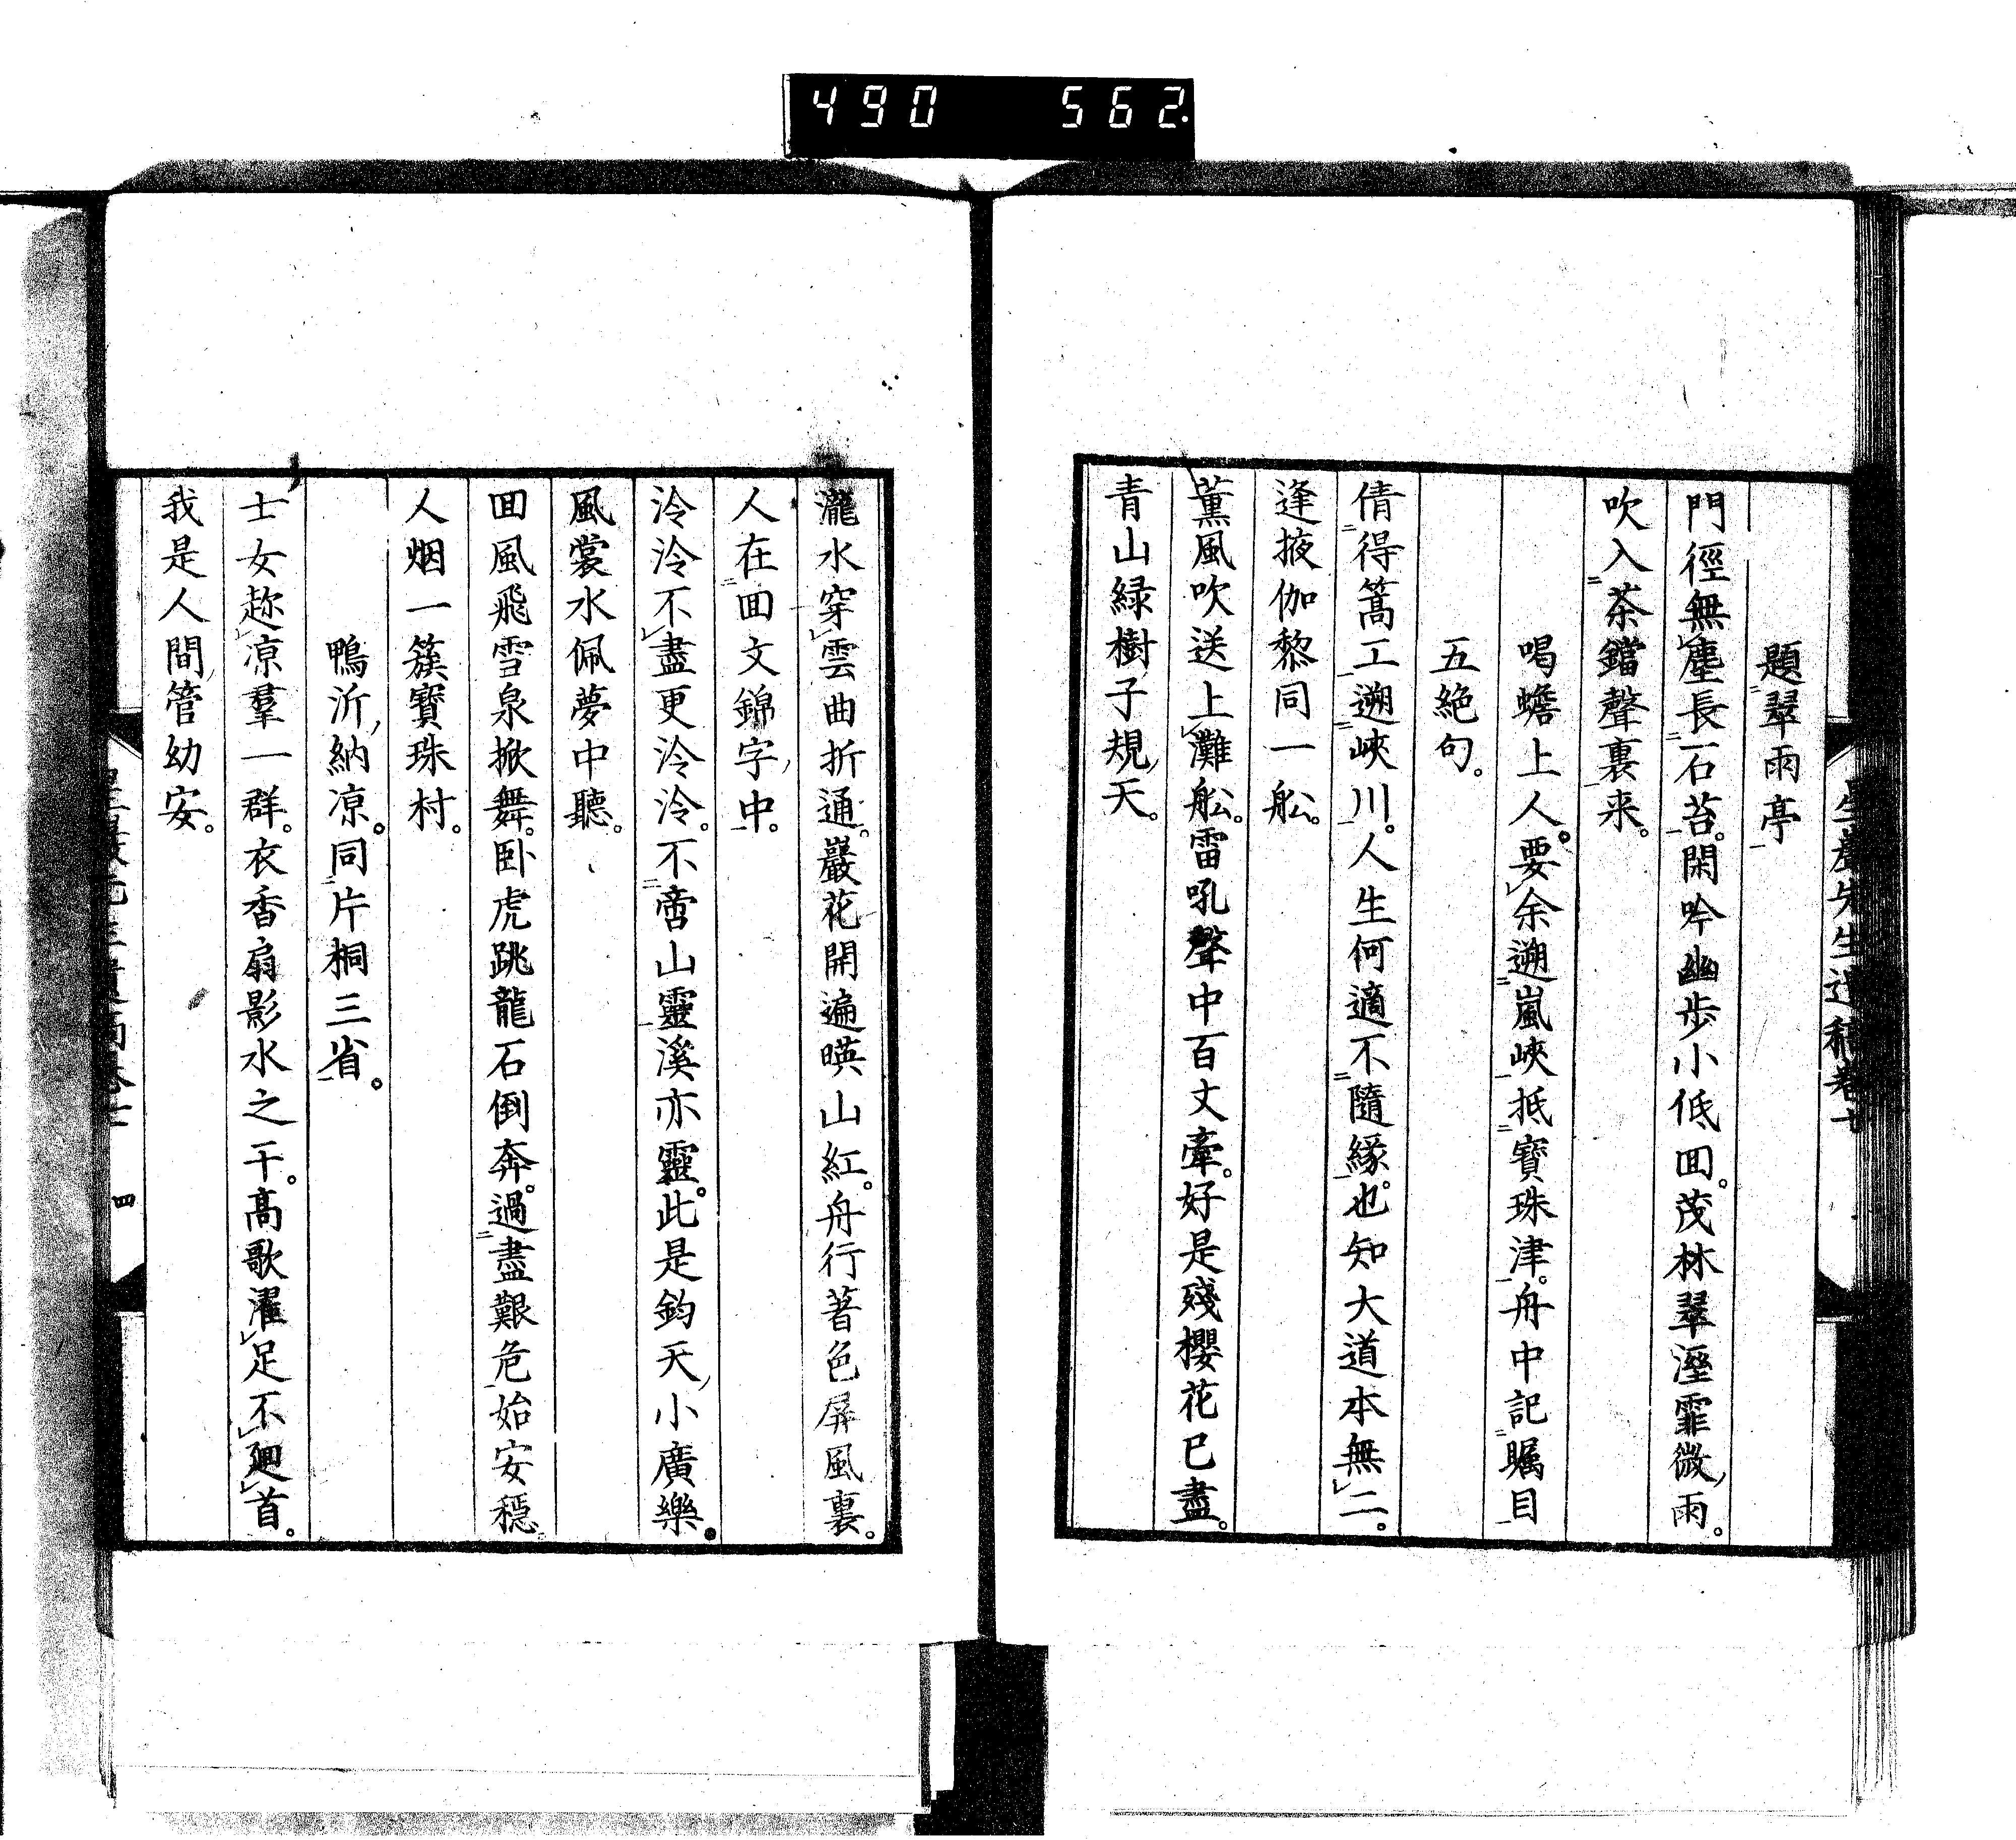 490 562
題翠雨亭
門徑無塵長石苔。閑吟幽步小低囬。茂林翠溼霏微雨。
吹入茶鐺聲裏来。
喝蟾上人。要余遡嵐峽抵寶珠津。舟中記矚目
五絶句。
倩得篙工遡峽川。人生何適不隨緣。也知大道本無二。
逢掖伽黎同一舩。
薫風吹送上灘舩。雷吼聲中百丈牽。好是殘櫻花已盡。
青山緑樹子規天。
瀧水穿雲曲折通。巖花開遍暎山紅。舟行著色屏風裏。
人在囬文錦字中。
泠泠不盡更泠泠。不啻山靈溪亦靈。此是鈞天小廣樂。
風裳水佩夢中聽。
囬風飛雪泉掀舞。卧虎跳龍石倒奔。過盡艱危始安穏
人烟一簇寶珠村。
鴨沂納凉。同片桐三省。
士女趂凉羣一群。衣香扇影水之干。高歌濯足不廻首。
我是人間管幼安。
四